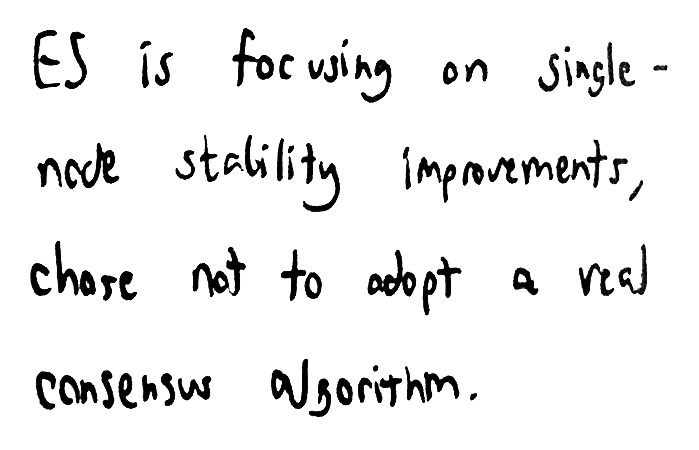 ES is focusing on single-
node stability improvements,
chose not to adopt a real
consensus algorithm.